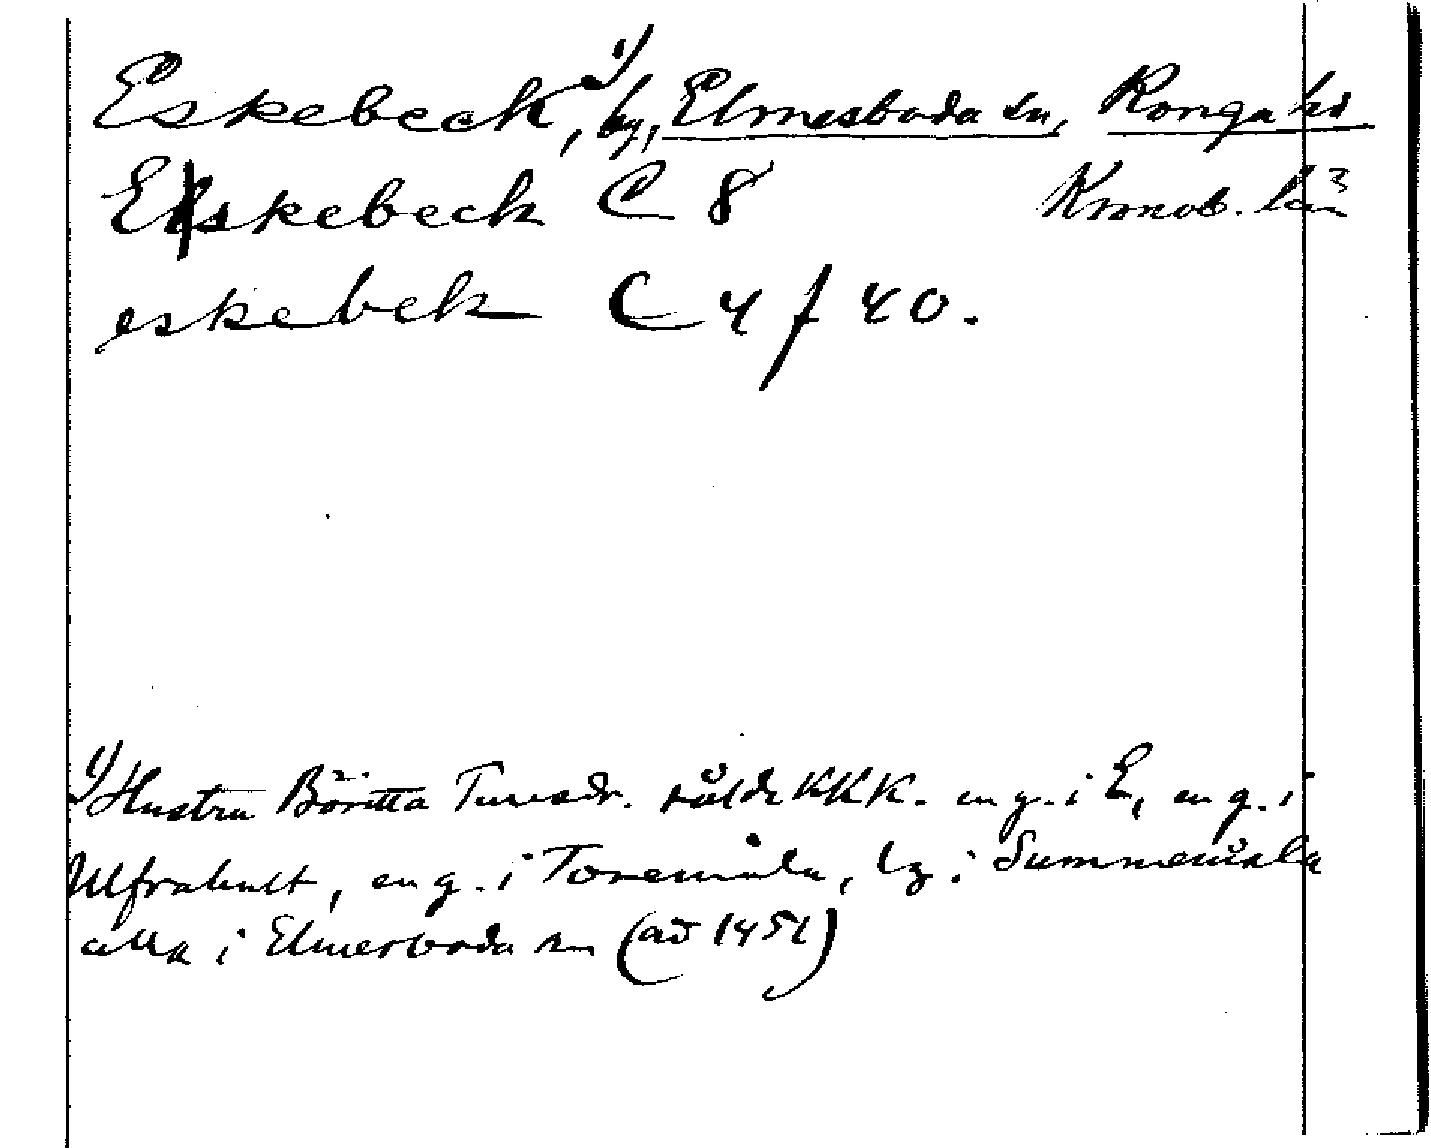 Eskebeck, ¹⁾ by, Elmesboda sn, Konga hd
Eskebeck C 8 Kronob. län
eskebek C 4 f 40.
1) Hustru Böritta Turesdr. sålde KKK. en g. i E, en g. i
Ulfrahult, en g. i Toremåla, 1 g i Summemåla
alla i Elmesboda sn (aò 1451)